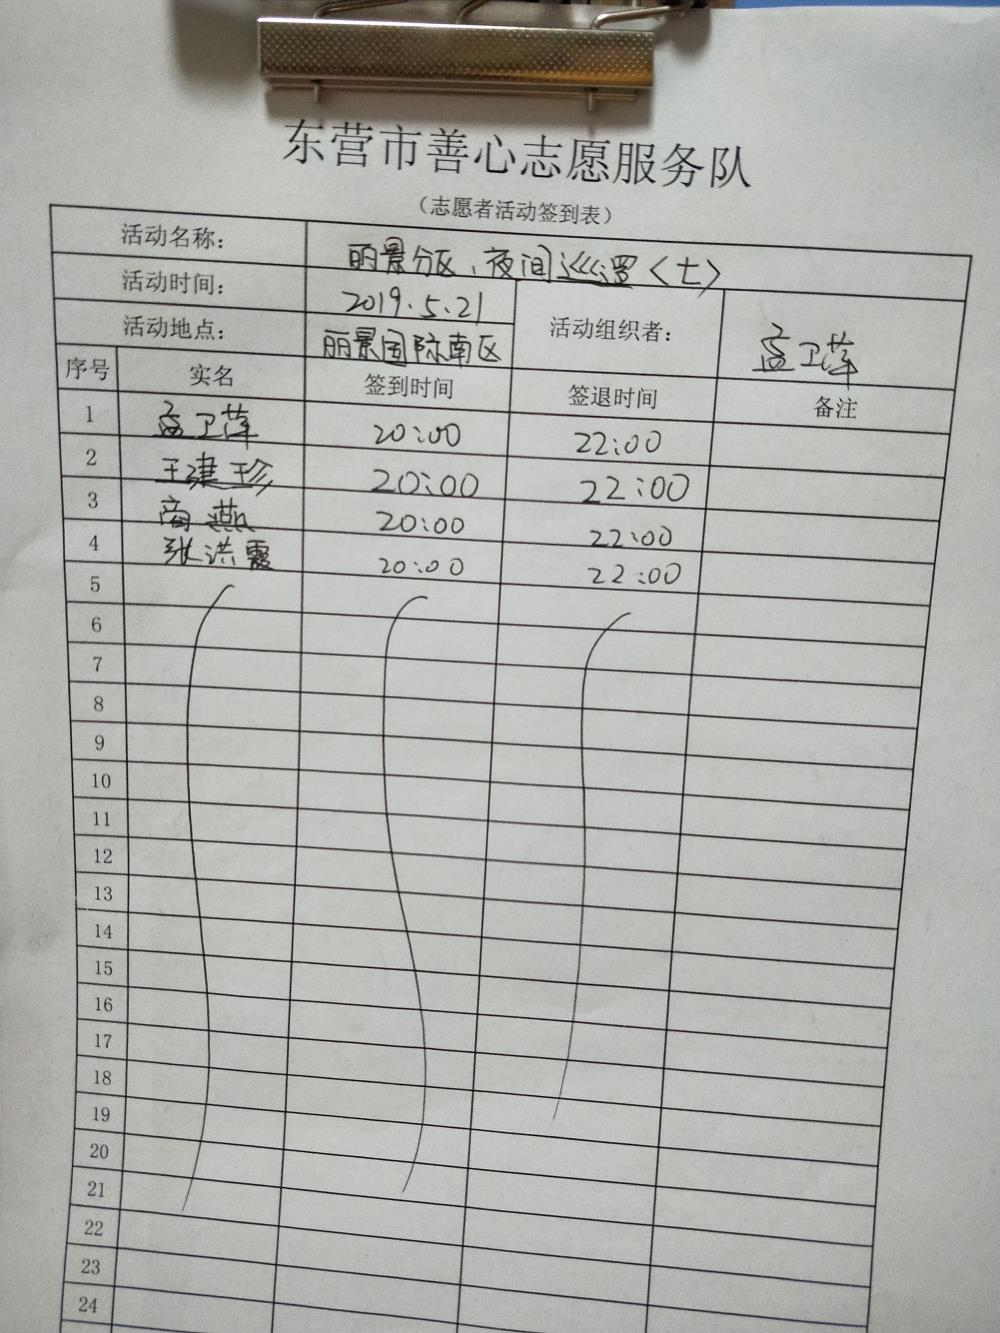 东营市善心志愿服务队
（志愿者活动签到表）
活动名称： 丽景分区、夜间巡逻〈七〉
活动时间： 2019.5.21 活动组织者： 孟卫萍
活动地点： 丽景国际南区
序号 实名 签到时间 签退时间 备注
1 孟卫萍 20:00 22:00
2 王建珍 20:00 22:00
3 商燕 20:00 22:00
4 张洪霞 20:00 22:00
5
6
7
8
9
10
11
12
13
14
15
16
17
18
19
20
21
22
23
24